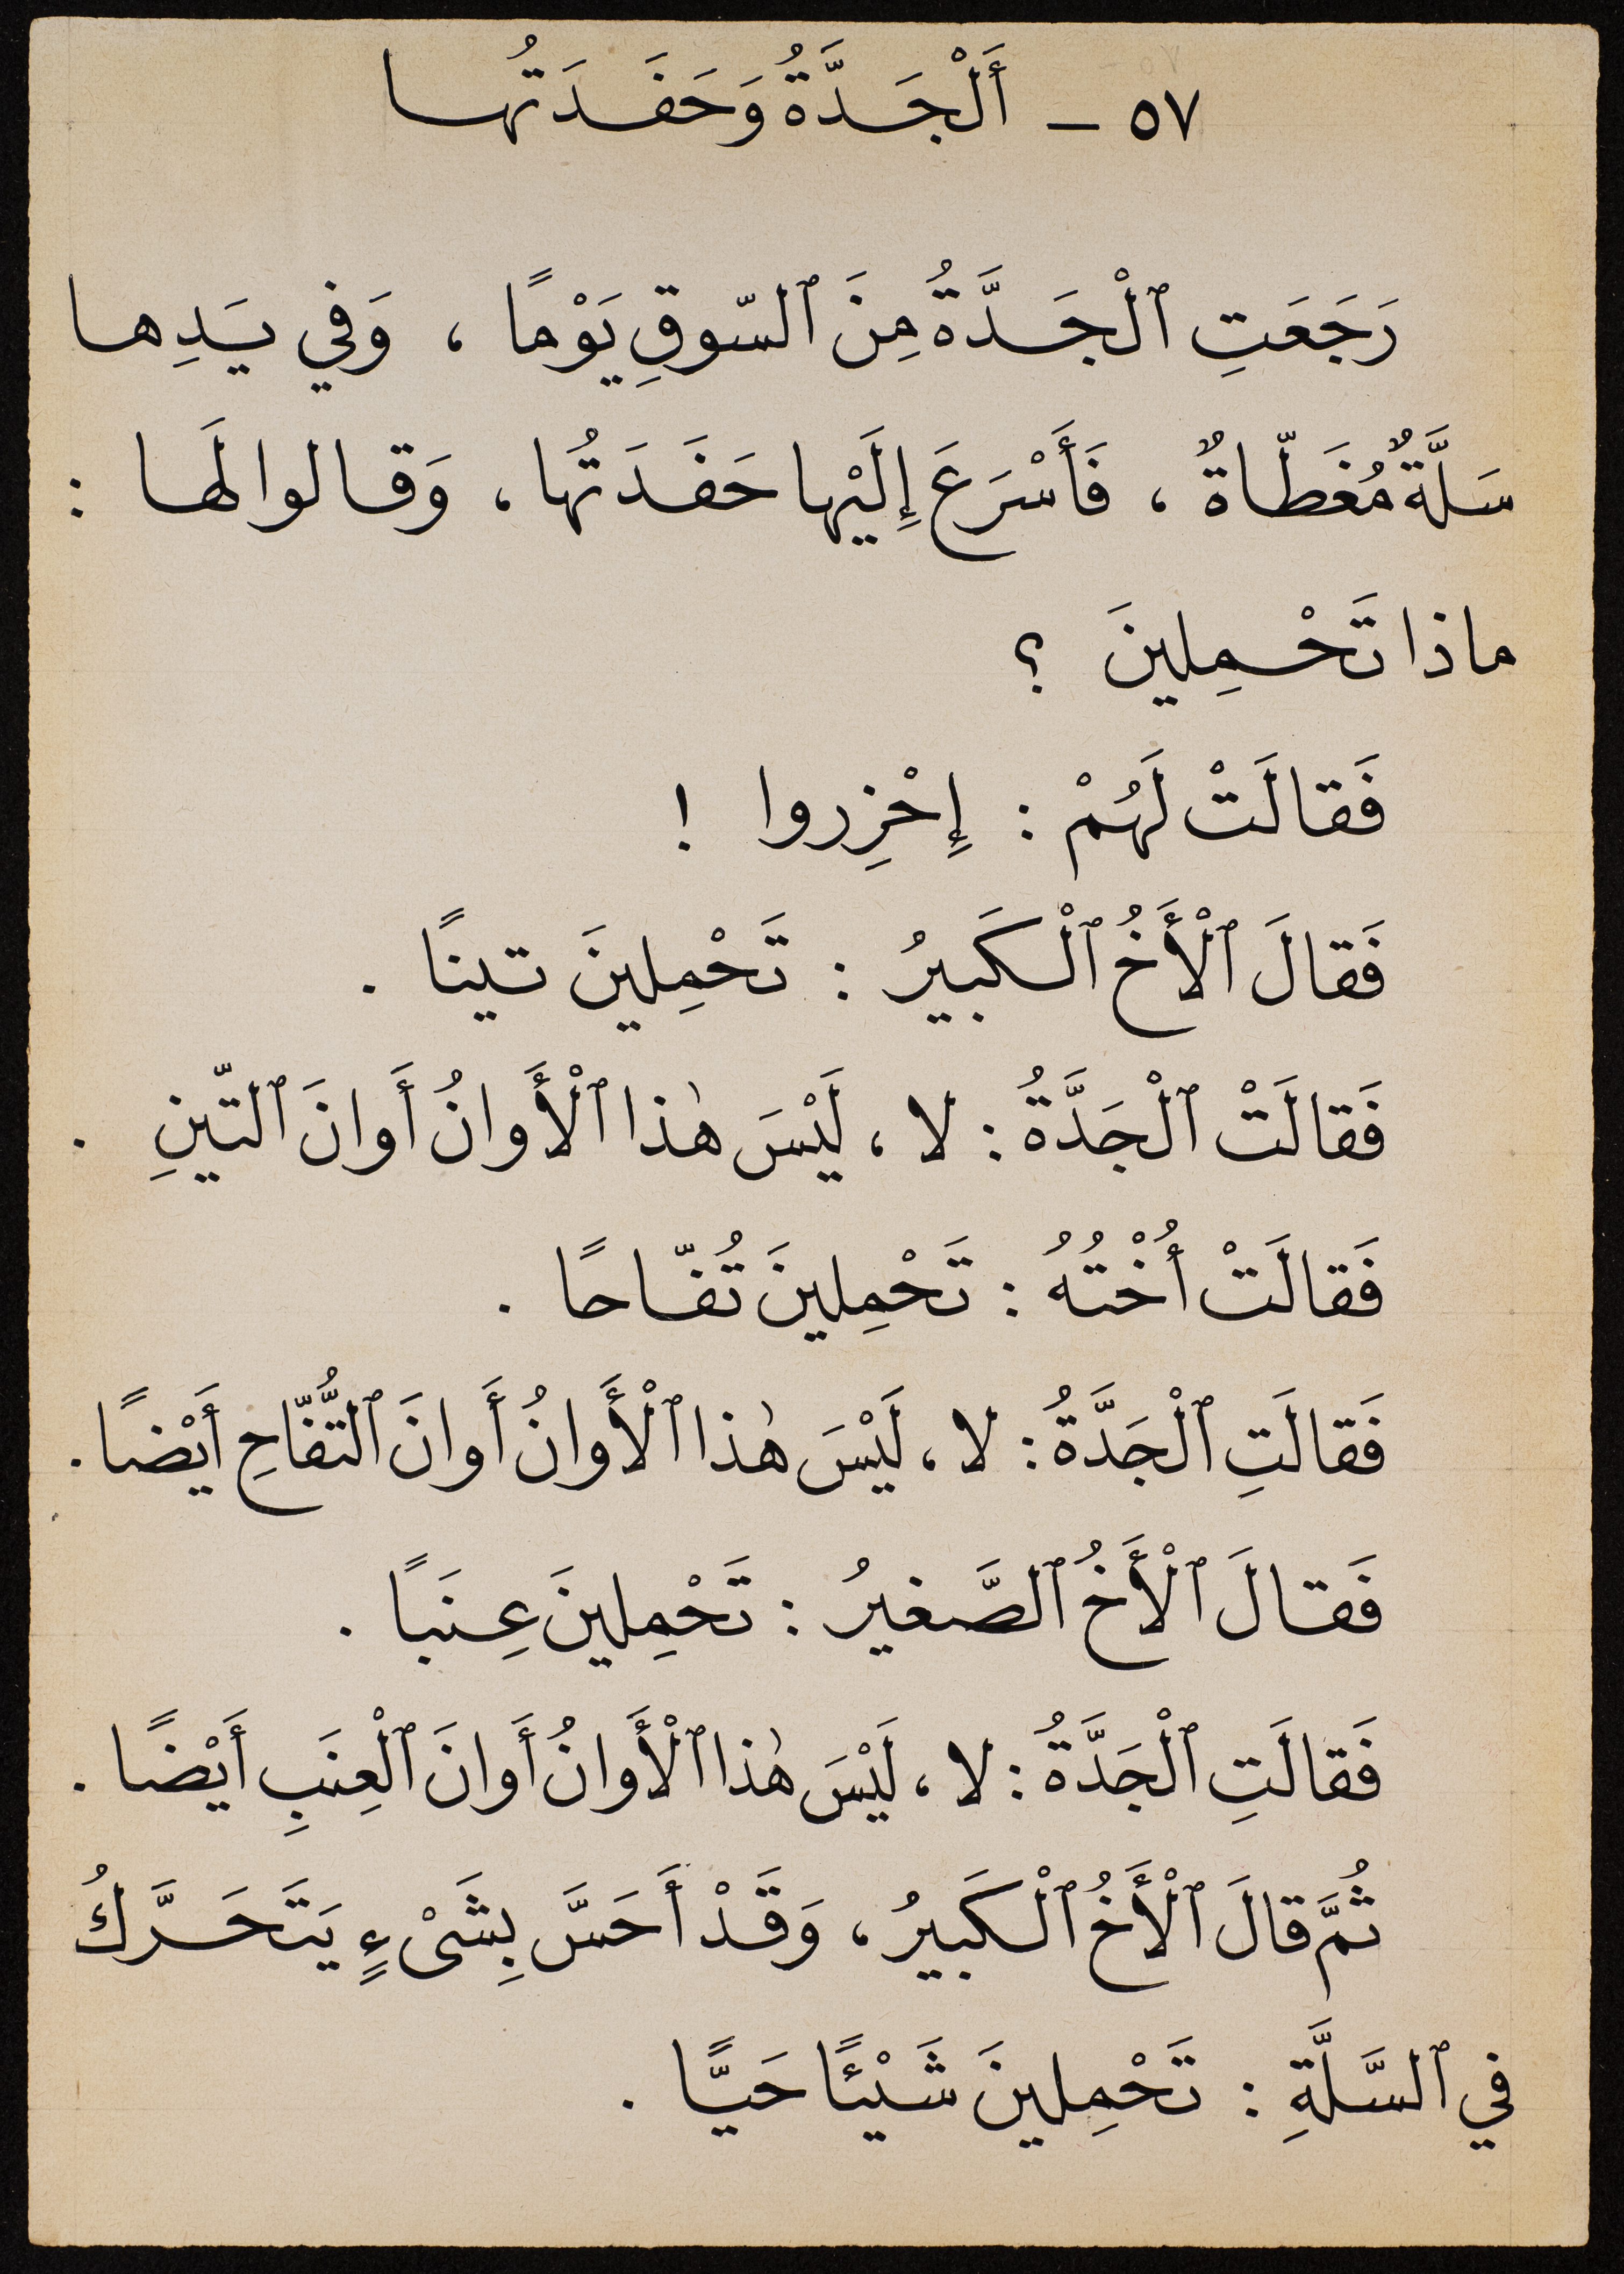 ٥٧ – أَلْجَدَّةُ وَحَفَدَتُها
رَجَعَتِ ٱلْجَدَّةُ مِنَ ٱلسّوقِ يَوْمًا ، وَفي يَدِها
سَلَّةٌ مُغَطّاةٌ ، فَأَسْرَعَ إِلَيْها حَفَدَتُها ، وَقالوا لَها :
ماذا تَحْمِلينَ ؟
فَقالَتْ لَهُمْ : إِحْزِروا !
فَقالَ ٱلْأَخُ ٱلْكَبيرُ : تَحْمِلينَ تينًا .
فَقالَتْ ٱلْجَدَّةُ : لا ، لَيْسَ هٰذا ٱلْأَوانُ أَوانَ ٱلتّينِ .
فَقالَتْ أُخْتُهُ : تَحْمِلينَ تُفّاحًا .
فَقالَتِ ٱلْجَدَّةُ : لا ، لَيْسَ هٰذا ٱلْأَوانُ أَوانَ ٱلتُّفّاحِ أَيْضًا .
فَقالَ ٱلْأَخُ ٱلصَّغيرُ : تَحْمِلينَ عِنَبًا .
فَقالَتِ ٱلْجَدَّةُ : لا ، لَيْسَ هٰذا ٱلْأَوانُ أَوانَ ٱلْعِنَبِ أَيْضًا .
ثُمَّ قالَ ٱلْأَخُ ٱلْكَبيرُ ، وَقَدْ أَحَسَّ بِشَىْءٍ يَتَحَرَّكُ
في ٱلسَّلَّةِ : تَحْمِلينَ شَيْئًا حَيًّا .